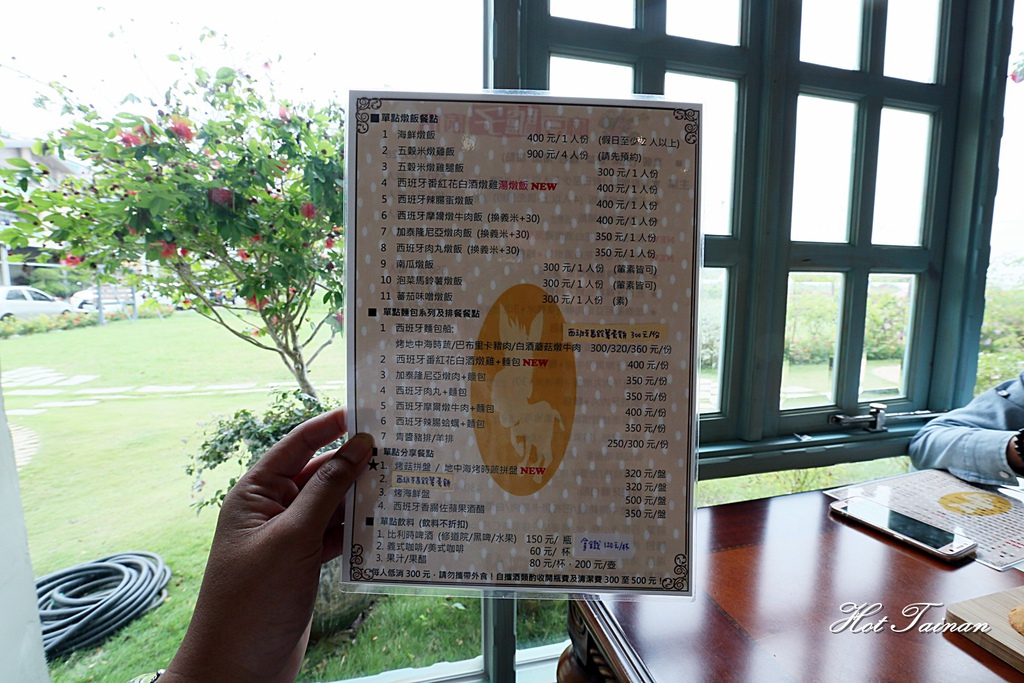 ■單點燉飯餐點
1 海鮮燉飯 400 元/1 人份 (假日至少2 人以上)
2 五穀米燉雞飯 900 元/ 4 人份 (請先預約)
3 五穀米燉雞腿飯 300 元/1 人份
4 西班牙番紅花白酒燉雞湯燉飯 NEW 400 元/1 人份
5 西班牙辣腸蛋燉飯 400 元/1 人份
6 西班牙摩爾燉牛肉飯 (換義米+30) 400 元/1 人份
7 加泰隆尼亞燉肉飯 (換義米+30) 350 元/1 人份
8 西班牙肉丸燉飯 (換義米+30) 350 元/1 人份
9 南瓜燉飯 300 元/1 人份 (葷素皆可)
10 泡菜馬鈴薯燉飯 300 元/1 人份 (葷素皆可)
11 蕃茄味噌燉飯 300 元/1 人份 (素)
■ 單點麵包系列及排餐餐點
1 西班牙麵包船:
烤地中海時蔬/巴布里卡豬肉/白酒蘑菇燉牛肉 300/320/360 元/份
2 西班牙番紅花白酒燉雞+麵包 NEW 400 元/份
3 加泰隆尼亞燉肉+麵包 350 元/份
4 西班牙肉丸+麵包 350 元/份
5 西班牙摩爾燉牛肉+麵包 400 元/份
6 西班牙辣腸蛤蠣+麵包 350 元/份
7 青醬豬排/羊排 250/300 元/份
■ 單點分享餐點
★1. 烤菇拼盤 / 地中海烤時蔬拼盤 NEW 320 元/盤
2. 320 元/盤
3. 烤海鮮盤 500 元/盤
4. 西班牙香腸佐蘋果酒醋 350 元/盤
■ 單點飲料 (飲料不折扣)
1. 比利時啤酒 (修道院/黑啤/水果) 150 元/ 瓶
2. 義式咖啡/美式咖啡 60 元/ 杯 拿鐵 120元/杯
3. 果汁/果醋 80 元/杯・200 元/壺
每人低消 300 元，請勿攜帶外食！自攜酒類酌收開瓶費及清潔費 300 至 500 元！
Hot Tainan